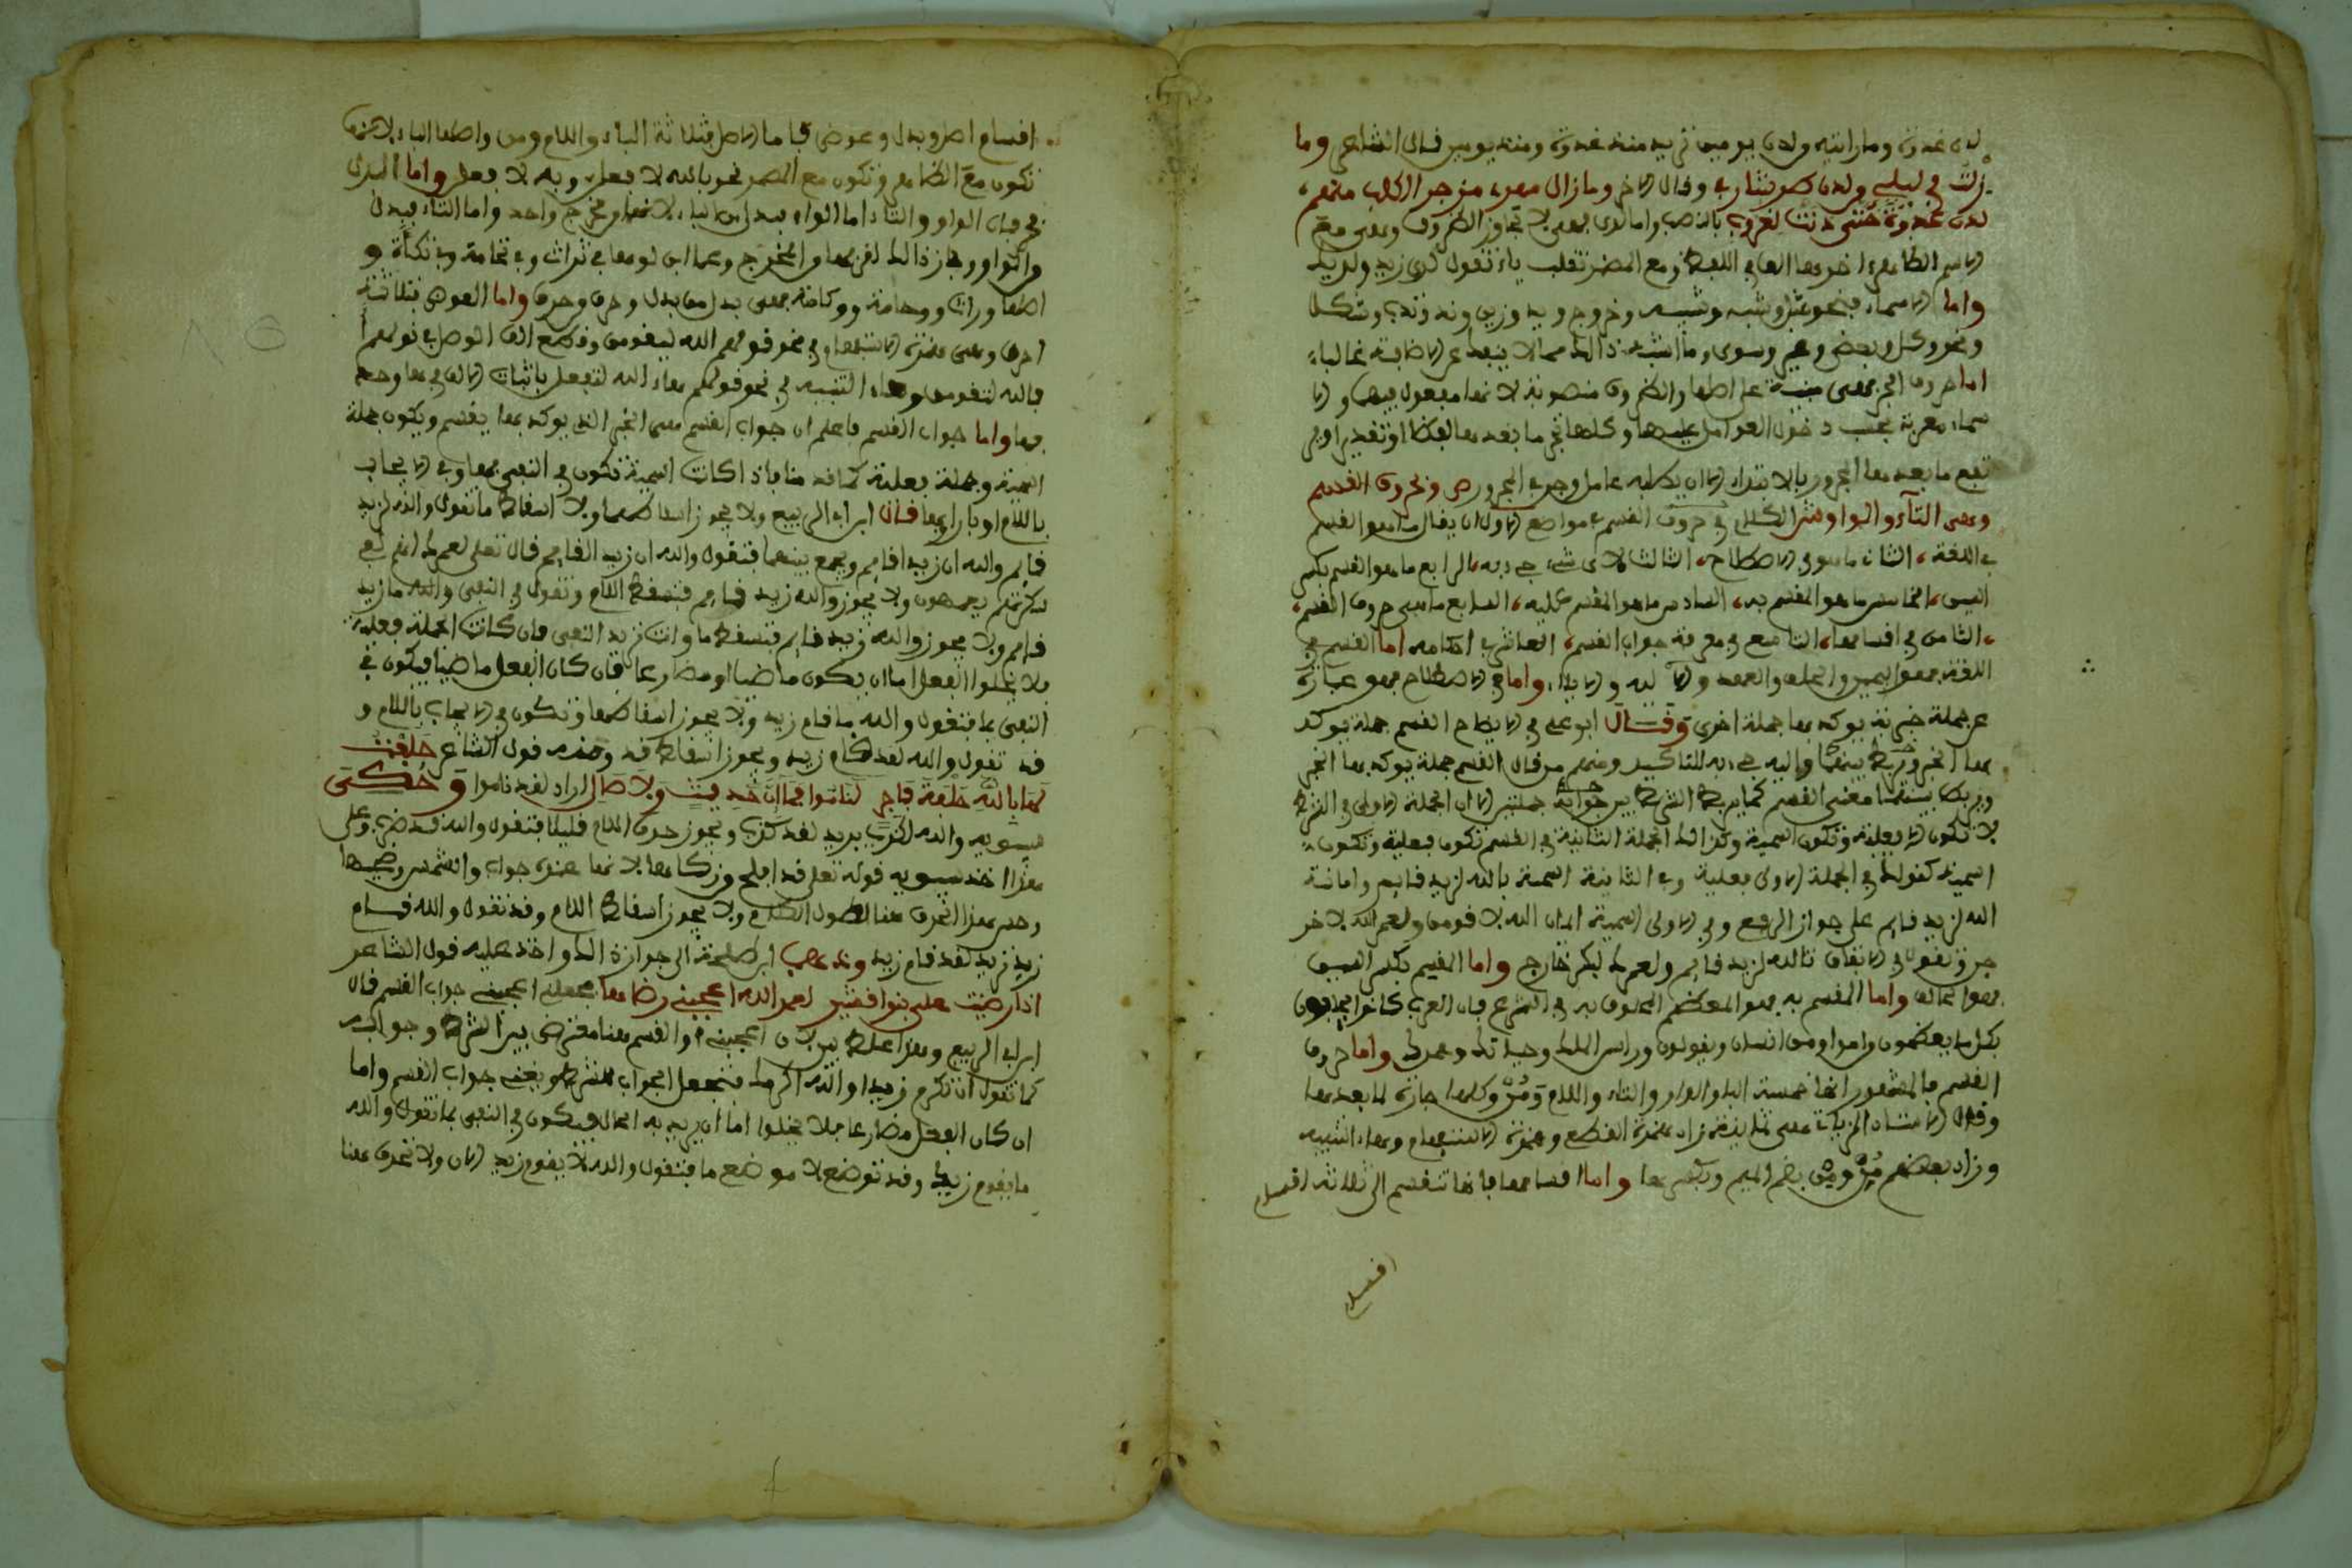 لدن غدوة وما رايته ولدن يومين تريد منذ غدوة ومنذ يومين قال الشاعر وما
زلت في ليلى ولدن طر شاربي وقال الاخر وما زال مهري مزجر الكلب منهم
لدن غدوة حتى دنت لغروب بالنصب واما لدى بمعنى لا تجاوز الظروف وهي مع
الاسم الظاهر اخرها الف في اللفظ ومع المضمر تقلب ياء تقول لدى زيد ولديك
واما الاسماء فنحو مثل وشبه وشبيه
ونحو وكل وبعض وغير وسوى وما اشبه ذلك مما لا ينفك عن الاضافة غالبا
اما حروف الجر فهي مبنية على اصلها والظروف منصوبة لانها مفعول فيها والا
سماء معربة بحسب دخول العوامل عليها وكلها تجر ما بعدها لفظا او تقديرا ولا
تقع ما بعدها المجرور بالابتداء الا ان يطلبه عامل وحرف المجرور ص وحروف القسم
وهي التاء والواو ش الكلام في حروف القسم في مواضع الاول ان يقال ما هو القسم
في اللغة، الثاني ما هو في الاصطلاح، الثالث لاي شيء جيء به، الرابع ما هو القسم بكسر
السين، الخامس ما هو المقسم به، السادس ما هو المقسم عليه، السابع ما هي حروف القسم،
الثامن في اقسامها، التاسع في معرفة جواب القسم، العاشر في احكامه اما القسم في
اللغة فهو اليمين والحلف والعهد والالية والايلاء واما في الاصطلاح فهو عبارة
عن جملة خبرية يوكد بها جملة اخرى وقال ابو علي في الايضاح القسم جملة يوكد
بها الخبر وربط بينهما واليه جيء به للتاكيد ومنهم من قال القسم جملة يوكد بها الخبر
وربط بينهما معنى القسم كما يربط الشرط بين جوابه جملتين الا ان الجملة الاولى في الشرط
لا تكون الا فعلية وتكون اسمية وكذلك الجملة الثانية في القسم تكون فعلية وتكون
اسمية كقولك في الجملة الاولى فعلية وفي الثانية اسمية بالله لزيد قايم وامانة
الله لزيد قايم على جواز الرفع وفي الاولى اسمية ايمان الله لاقومن ولعمر الله لاخر
جن وتقول في الاتفاق تالله لزيد قايم ولعمرك لبكر خارج واما المقسم بكسر السين
فهو الحالف واما المقسم به فهو المعظم المحلوف به في الشرع فان العرب كانوا يحلفون
بكل ما يعظمون واموا ومن انسان ويقولون وراس الملك وحياتك وعمرك واما حروف
القسم فالمشهور انها خمسة الباء والواو والتاء واللام ومن وكلها جارة لما بعدها
وقال الاستاذ ابو زكرياء هي ثمانية زاد همزة القطع وهمزة الاستفهام وهاء التنبيه
وزاد بعضهم من ومن بضم الميم وكسرها واما اقسامها فانها تنقسم الى ثلاثة اقسام
اقسام
اقسام اصل وبدل وعوض فاما الاصل فثلاثة الباء واللام ومن واصلها الباء لانها
تكون مع الظاهر وتكون مع المضمر نحو بالله لافعلن وبه لافعلن واما البدل
فهي فان الواو والتاء اما الواو فبدل من الباء لانهما من مخرج واحد واما التاء فبدل
من الواو وجاز ذلك لقربهما في المخرج وهما ابدلوهما في تراث وفي تخامة وفي تكأة و
اصلها وراث ووخامة ووكاءة فهي بدل من بدل وحرف وحرف واما العوض فثلاثة
احرف وهي همزة الاستفهام في نحو قولهم الله ليقومن وقطع الف الوصل في قولهم ا
فالله لتقومن وهاء التنبيه في نحو قولكم هاء الله لتفعلن باثبات الالف في ها وحذ
فها واما جواب القسم فاعلم ان جواب القسم هي الخبر الذي يوكد بها يقسم ويكون جملة
اسمية وجملة فعلية كما قدمنا فاذا كانت اسمية تكون في النفي بما وفي الايجاب
باللام او بان او بهما قال ابن ابي الربيع ولا يجوز اسقاطهما ولا اسقاط ما تقول والله لزيد
قايم والله ان زيدا قايم ويجمع بينهما فتقول والله ان زيدا لقايم قال تعلى لعمرك انهم لفي
سكرتهم يعمهون ولا يجوز والله زيد قايم فتسقط اللام وتقول في النفي والله ما زيد
قايم ولا يجوز والله زيد قايم فتسقط ما وانت تريد النفي فان كانت الجملة فعلية
فلا يخلوا الفعل اما ان يكون ماضيا او مضارعا فان كان الفعل ماضيا فيكون في
النفي بما فتقول والله ما قام زيد ولا يجوز اسقاطها وتكون في الايجاب باللام و
قد تقول والله لقد قام زيد ويجوز اسقاط قد ومنه قول الشاعر حلفت
لها بالله حلفة فاجر لناموا فما ان حديث ولا صال اراد لقد ناموا وحكى
سيبويه والله لكذب يريد لقد كذب ويجوز حذف اللام قليلا فتقول والله قد ضرب وعلى
هذا اخذ سيبويه قوله تعلى قد افلح من زكاها لانها عنده جواب والشمس وضحاها
وحسن هذا الحذف هنا لطول الكلام ولا يجوز اسقاط اللام وقد تقول والله قسام
زيد تريد لقد قام زيد وذهب ابن طلحة الى جواز ذلك واخذ عليه قول الشاعر
اذا رضيت علي بنوا قشير لعمر الله اعجبني رضاها فجعل اعجبني جواب القسم قال
ابن ابي الربيع وهذا غلط بين لان اعجبني والقسم هنا معترض بين الشرط وجوابه
كما تقول ان تكرم زيدا والله اكرمك فتجعل الجواب للشرط ويغني جواب القسم واما
ان كان الفعل مضارعا فلا يخلوا اما ان يريد به الحال فيكون في النفي بما تقول والله
ما يقوم زيد وقد توضع لا موضع ما فتقول والله لا يقوم زيد الان ولا تحذف هنا